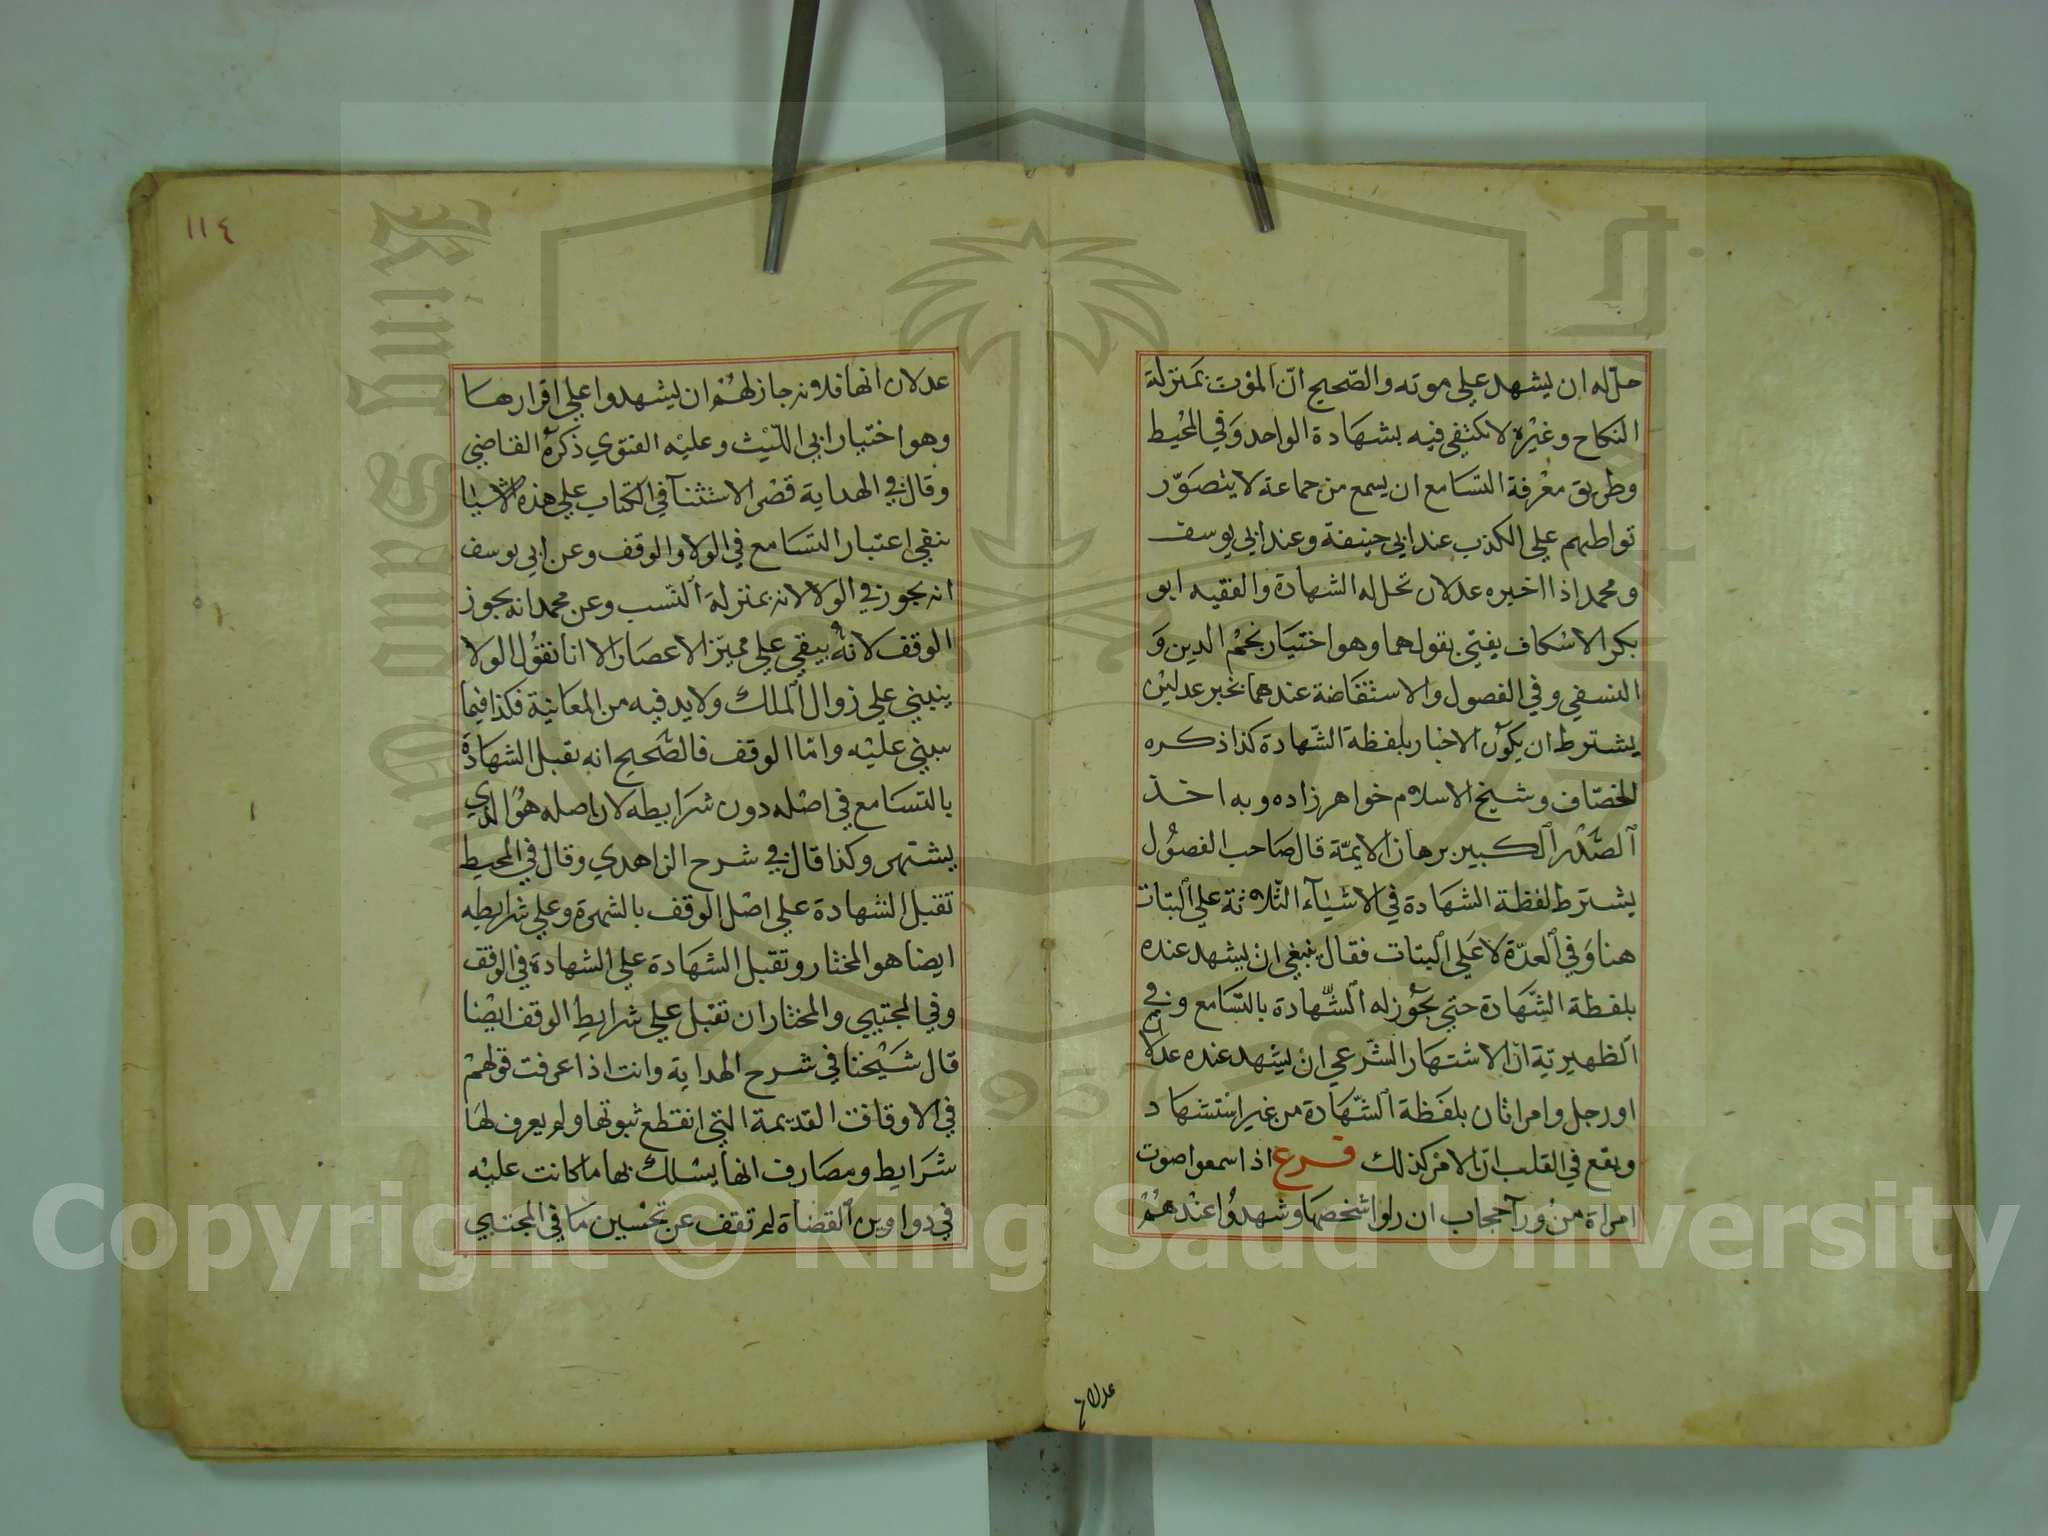 حل له ان يشهد علي موته والصحيح ان الموت بمنزلة
النكاح وغيره لا يكتفي فيه بشهادة الواحد وفي المحيط
وطريق معرفة التسامع ان يسمع من جماعة لا يتصور
تواطئهم علي الكذب عند ابي حنيفة وعند ابي يوسف
ومحمد اذا اخبره عدلان تحل له الشهادة والفقيه ابو
بكر الاسكاف يفتي بقولهما وهو اختيار نجم الدين و
النسفي وفي الفصول والاستفاضة عندهما بخبر عدلين
يشترط ان يكون الاخبار بلفظة الشهادة كذا ذكره
الخصاف وشيخ الاسلام خواهر زاده وبه اخذ
الصدر الكبير برهان الايمة قال صاحب الفصول
يشترط لفظة الشهادة في الاشيآء الثلاثة علي البتات
هنا وفي العدة لا علي البتات فقال ينبغي ان يشهد عنده
بلفظة الشهادة حتي يجوز له الشهادة بالتسامع وفي
الظهيرية ان الاشتهار الشرعي ان يشهد عنده عدلا
او رجل وامراتان بلفظة الشهادة من غير استشهاد
ويقع في القلب ان الامر كذلك فرع اذا سمعوا صوت
امراة من ورآ حجاب ان راوا شخصها وشهدوا عندهم
عدلان
١١٤
عدلان انها فلانه جاز لهم ان يشهدوا علي اقرارها
وهو اختيار ابي الليث وعليه الفتوي ذكره القاضي
وقال في الهداية قصر الاستثنآ في الكتاب علي هذه الاشيا
ينفي اعتبار التسامع في الولا والوقف وعن ابي يوسف
انه يجوز في الولا لانه بمنزلة النسب وعن محمد انه يجوز
الوقف لانه يبقي علي مميز الاعصار الا انا نقول الولا
ينبني علي زوال الملك ولا بد فيه من المعاينة فكذا فيما
يبني عليه واما الوقف فالصحيح انه تقبل الشهادة
بالتسامع في اصله دون شرايطه لان اصله هو الذي
يشتهر وكذا قال في شرح الزاهدي وقال في المحيط
تقبل الشهادة علي اصل الوقف بالشهرة وعلي شرايطه
ايضا هو المختار وتقبل الشهادة علي الشهادة في الوقف
وفي المجتبي والمختار ان تقبل علي شرايط الوقف ايضا
قال شيخنا في شرح الهداية وانت اذا عرفت قولهم
في الاوقاف القديمة التي انقطع ثبوتها ولم يعرف لها
شرايط ومصارف انها يسلك بها ما كانت عليه
في دواوين القضاة لم تقف عن تحسين ما في المجتبي
Copyright © King Saud University